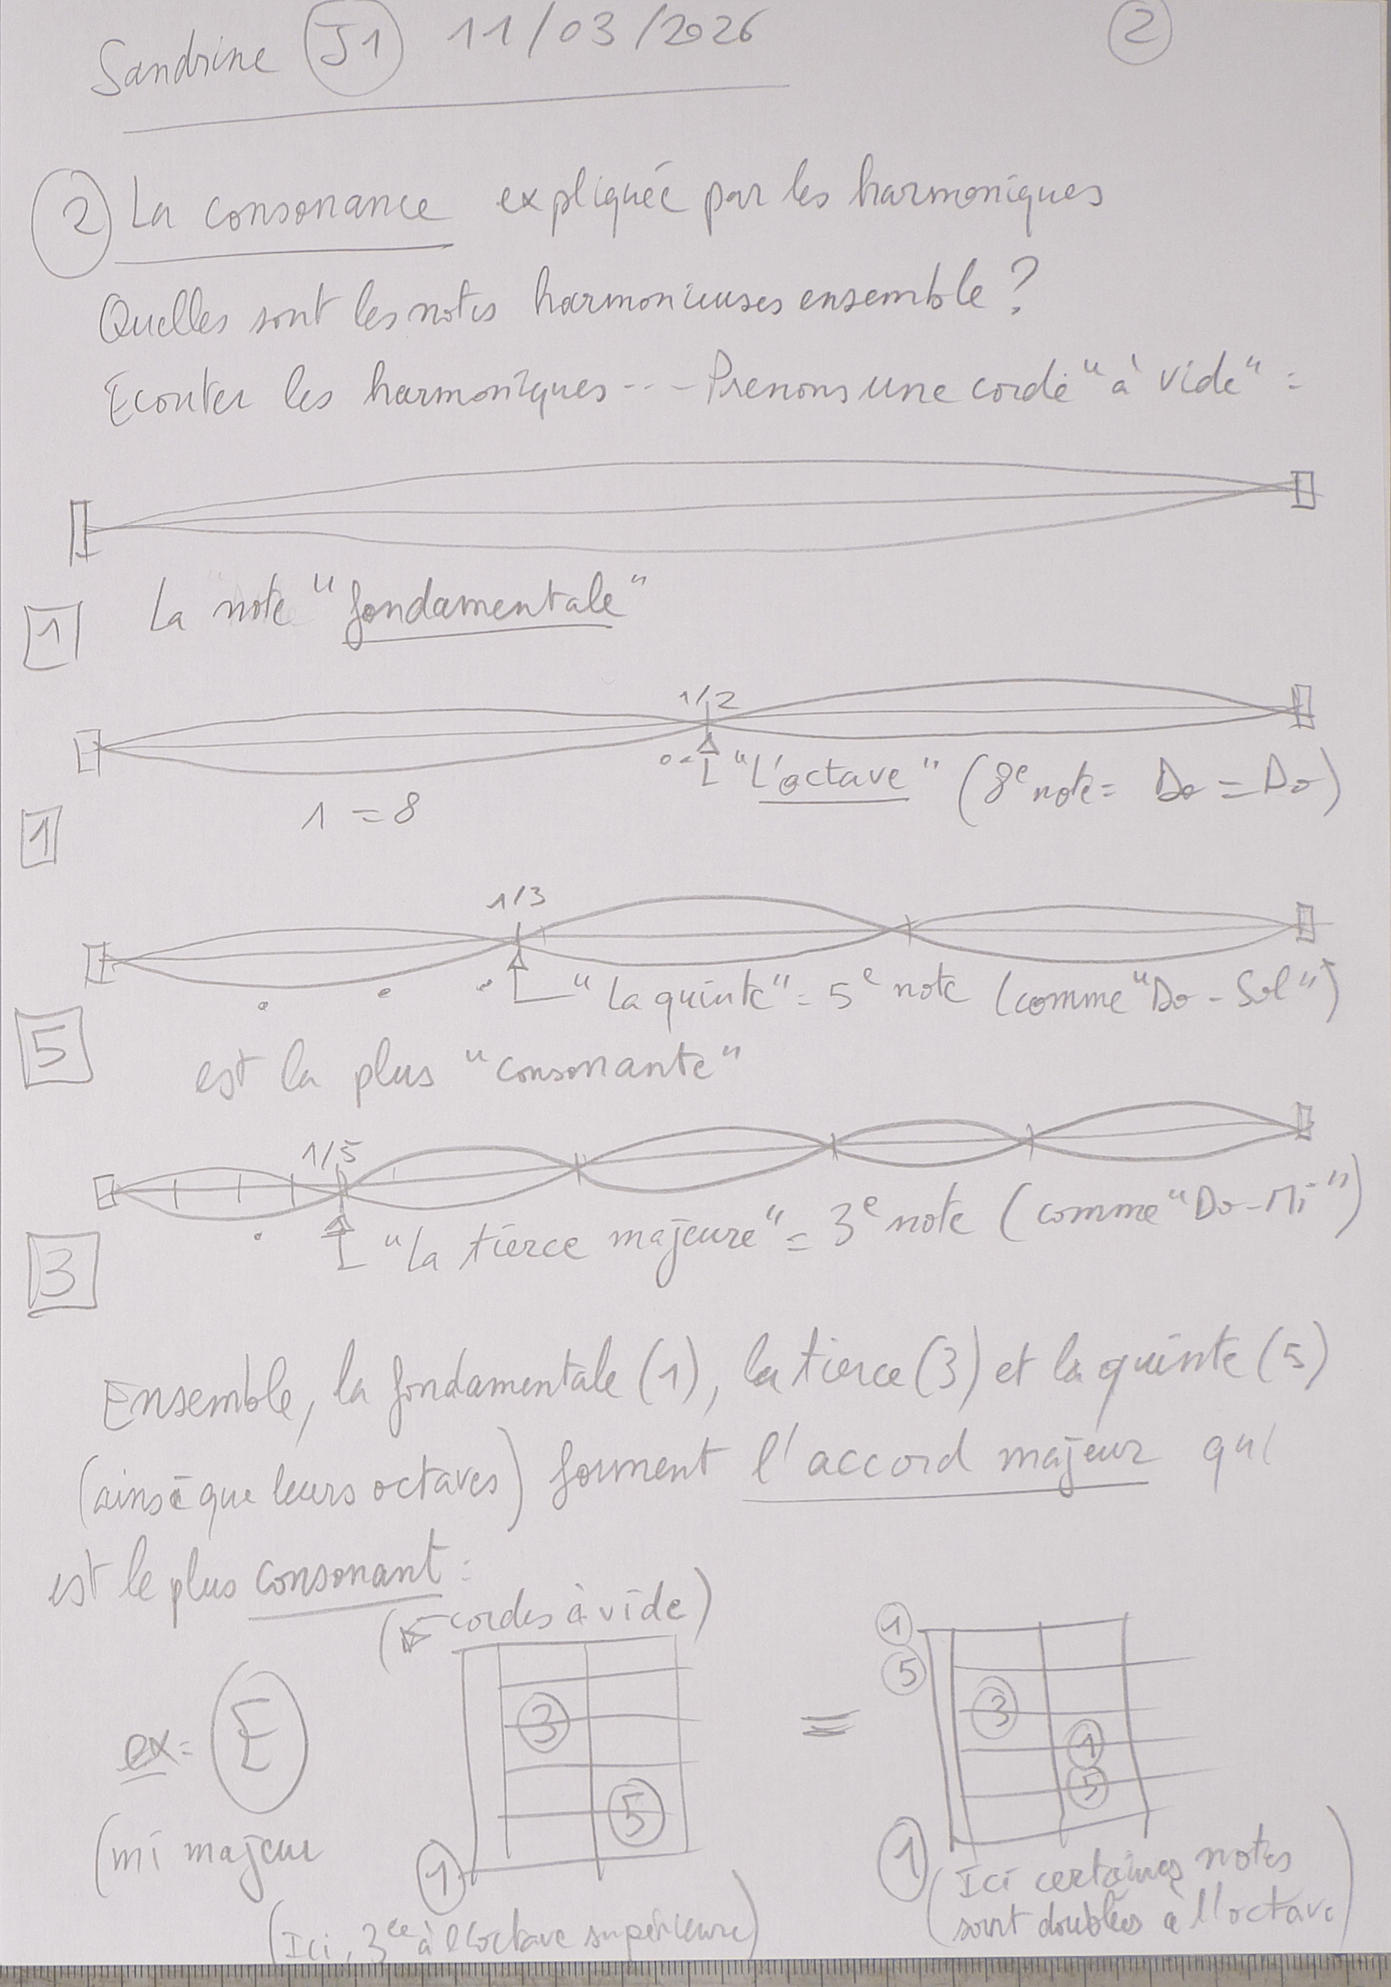 Sandrine J1 11/03/2026 2
2 La consonance expliquée par les harmoniques
Quelles sont les notes harmonieuses ensemble ?
Ecouter les harmoniques --- Prenons une corde "à vide" :
1 La note "fondamentale"
1/2
"L'octave" (8e note = Do = Do)
1 = 8
1
1/3
"La quinte" = 5e note (comme "Do - Sol")
5 est la plus "consonante"
1/5
"La tierce majeure" = 3e note (comme "Do - Mi")
3
Ensemble, la fondamentale (1), la tierce (3) et la quinte (5)
(ainsi que leurs octaves) forment l'accord majeur qui
est le plus consonant :
(← cordes à vide)
ex : E
3
5
1
=
1
5
3
1
5
1
(mi majeur
(Ici, 3ce à l'octave supérieure)
(Ici certaines notes
sont doublées à l'octave)